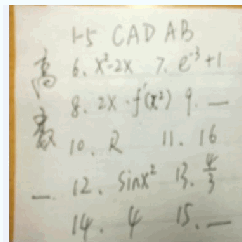 高数一
1-5 CAD AB
6. x²-2x 7. e⁻³+1
8. 2x·f'(x²) 9. __
10. 2 11. 16
12. sinx² 13. 4/3
14. 4 15. __